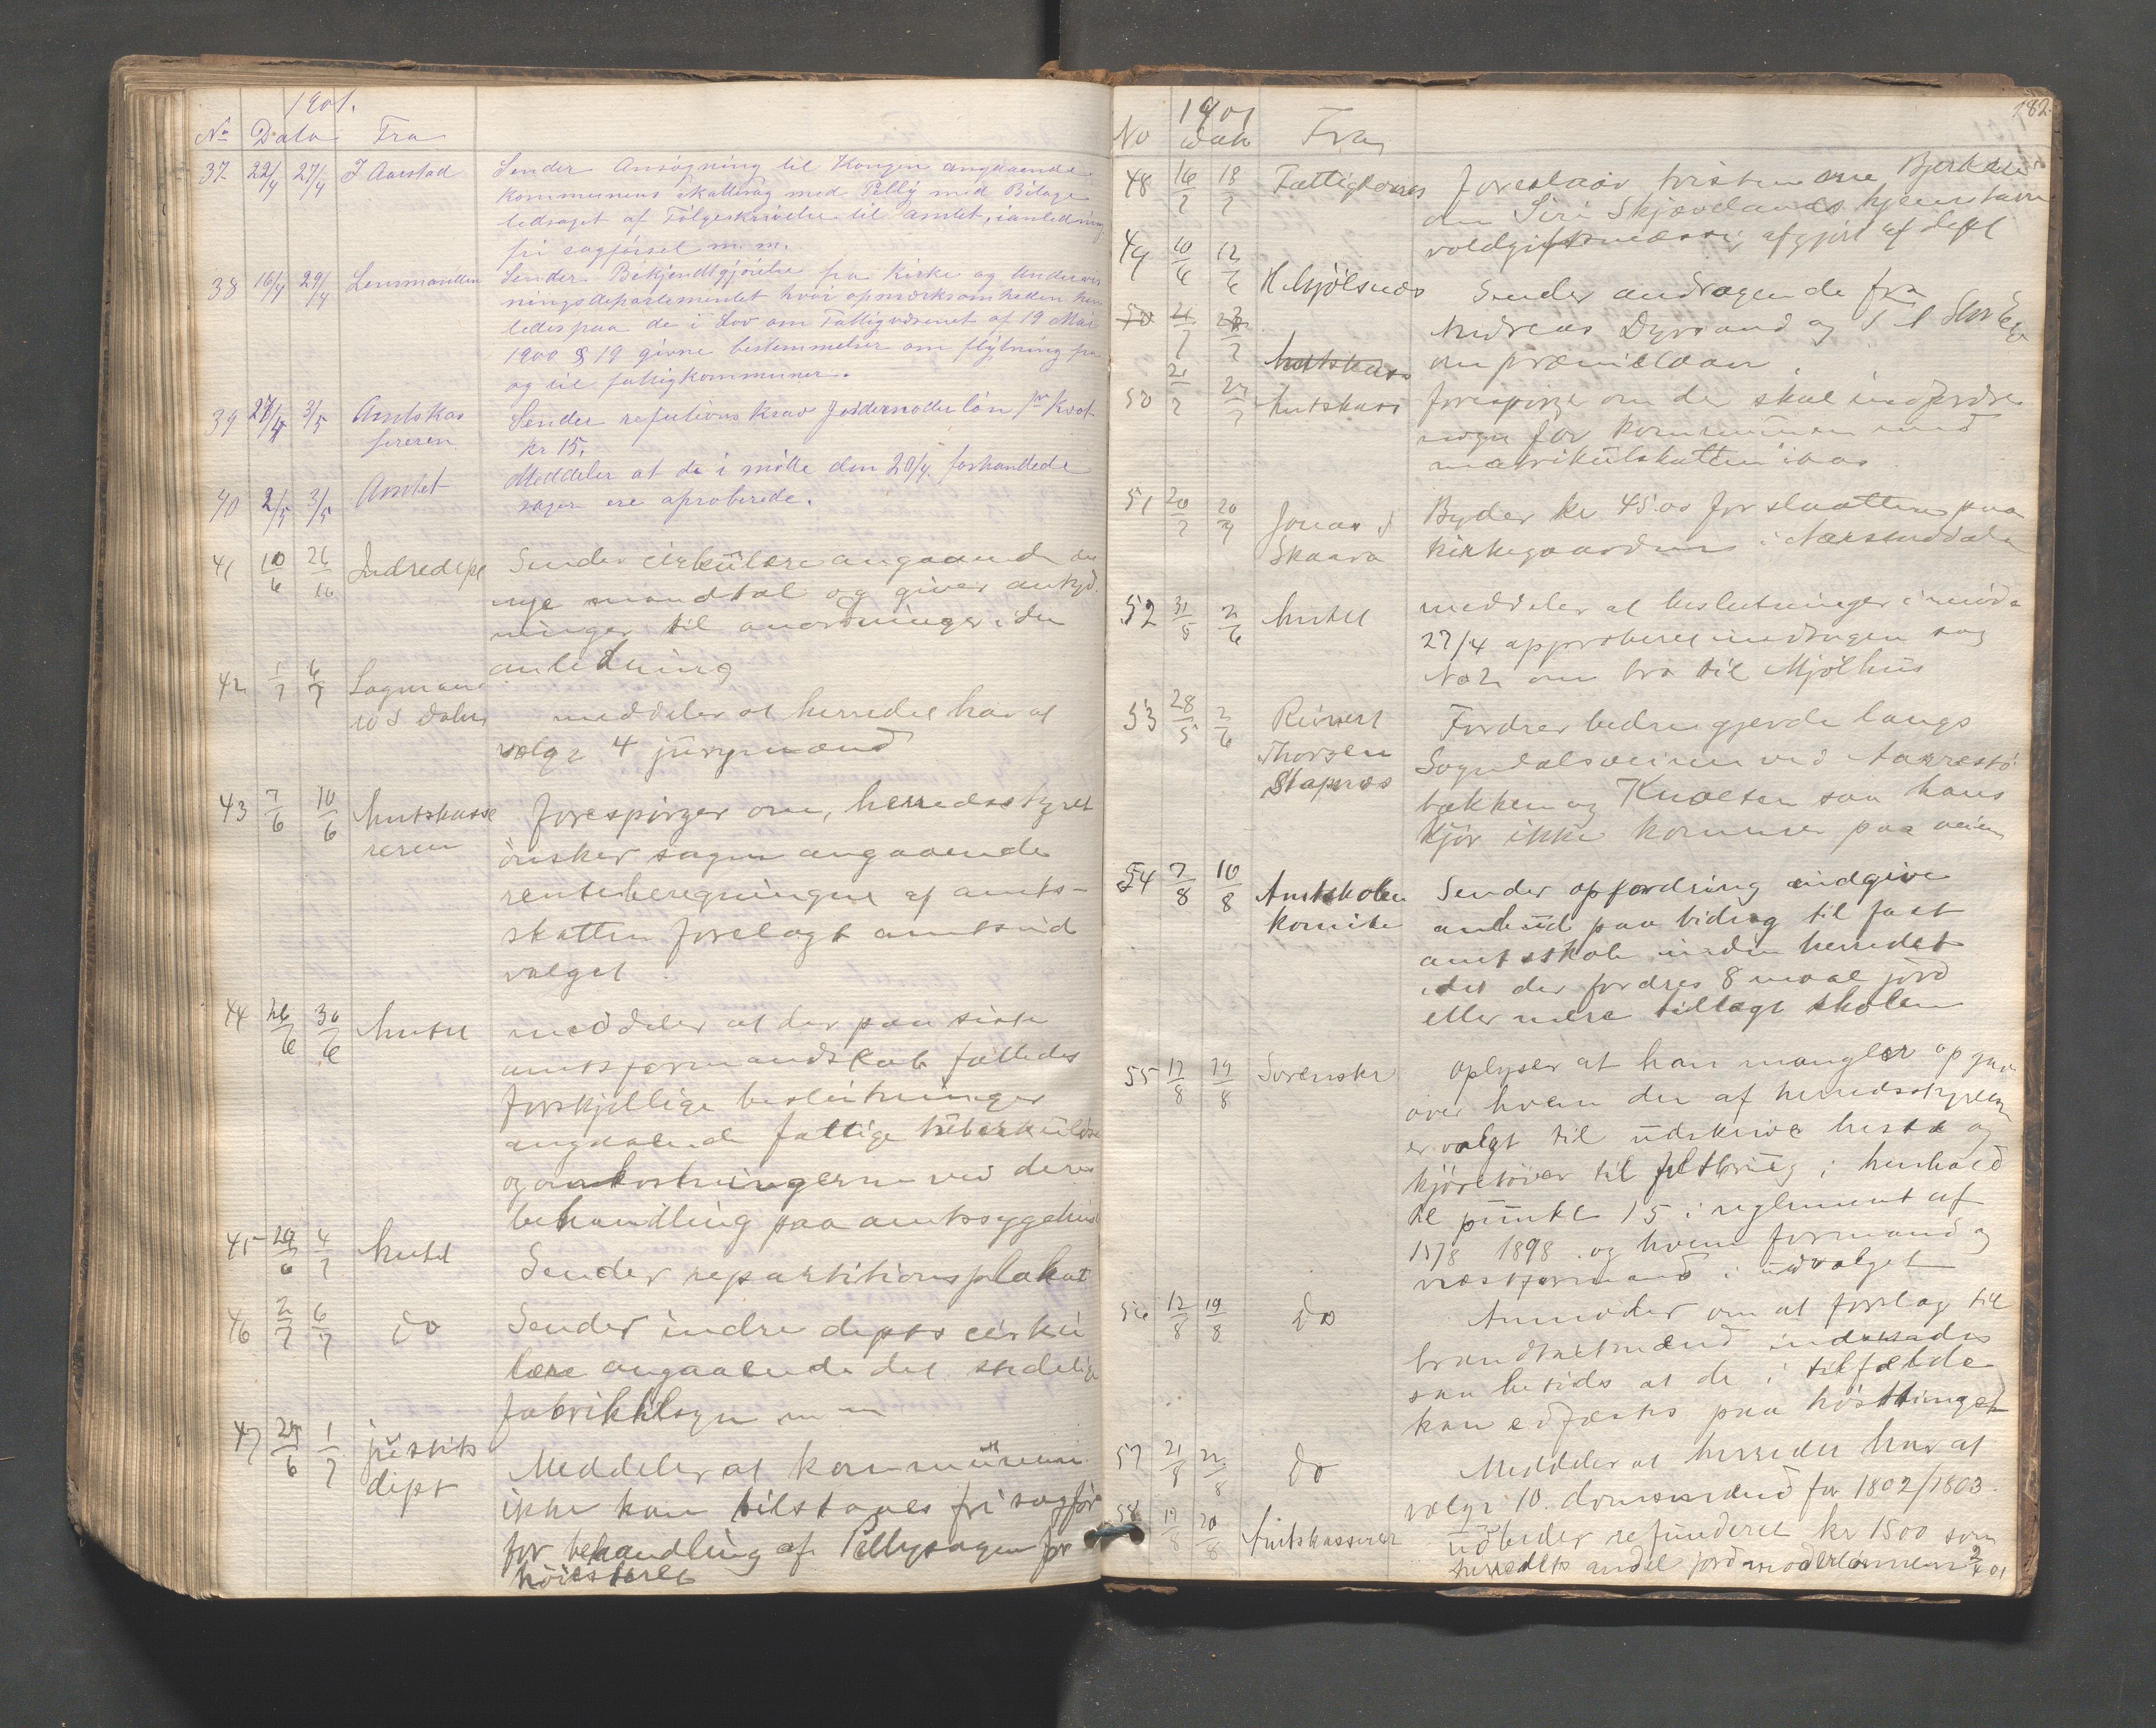 1901.
No Dato Fra
37 22/4 27/4 J Aarstad Sender Ansøgning til Kongen angaaende
kommunens skattesag med Pelly med Bilage
ledsaget af Følgeskrivelse til amtet, i anledning
fri sagførsel m.m.
38 16/4 29/4 Lensmanden Sender Bekjendtgjørelse fra Kirke og Undervis
ningsdepartementet hvor opmærksomheden hen
ledes paa de i Lov om Fattigvæsenet af 19 Mai
1900 § 19 givne bestemmelser om flytning fra
og til fattigkommuner.
39 27/4 3/5 Amtskas Sender refusions krav Jordemoderløn pr Kvart
sereren kr 15.
40 2/5 3/5 Amtet Meddeler at de i møtte den 20/4 forhandlede
sager ere aproberede.
41 10/6 Indredept Sender cirkülære angaaende de
nye mandtal og giver antyd
ninger til anordninger i den
anledning
42 1/7 6/7 Lagmand meddeler at herredet har at
vælge 4 jürymænd
43 7/6 10/6 Amtskasse forespørger om, herredsstyret
reren ønsker sagen angaaende
renteberegningen af amts-
skatten forelagt amtsüd
valget
44 26/6 30/6 Amtet meddeler at der paa siste
amtsformandskab fattedes
forskjellige beslütninger
angaaende fattige tüberküløse
og omkostningerne ved deres
behandling paa amtssygehus
45 29/6 4/7 Amtet Sender repartitionsplakat
46 2/7 6/7 do Sender indre depts cirkü
lære angaaende det stedelige
fabriktilsyn m m
47 29/6 1/7 jüstits Meddeler at kommünen
dept ikke kan tilstaaes fri sagfør
for behandling af Pellysagen for
höiesteret
182
1901
No Dato Fra
48 16/7 18/7 Fattigkomis Foreslaar tvisten me Bjerkrei
om Siri Skjævelands hjemstavn
voldgiftsmæssig afgjort af dept
49 10/6 12/6 H Mjølsnes Sender andragende fra
Andreas Dyrsand og
om præmielaan
50 21/7 Amtskass
50 21/7 Amtskass forespørge om der skal indfordres
noget for kommünen med
matrikülskatten iaar
51 20/7 20/7 Jonas J Byder kr 45.00 for slaatten paa
Skaara kirkegaarden i Aarstaddalen
52 31/5 2/6 Amtet meddeler at beslutninger i møde
27/4 approberet undtagen sag
No 2 om bro til Mjølhus
53 28/5 2/6 Reinert Fordrer bedre gjerde langs
Thorsen Sogndalsveien ved Aarrestø
Stapnæs bækken og Knolten saa hans
kjör ikke kommer paa veien
54 7/8 10/8 Amtskolen Sender opfordring indgive
komite anbüd paa bidrag til fast
amtsskole inden herredet
idet der fordres 8 maal jord
eller mere tillagt skolen
55 17/8 19/8 Sorenskr oplyser at han mangler opgave
over hvem der af herredsstyret
er valgt til üdskrive heste og
kjøretøier til feltbrüg i henhold
til pünkt 15 i reglement af
15/8 1898 og hvem formand og
viceformand i üdvalget
56 17/8 19/8 Do Anmoder om at forslag til
brandtaxtmænd indsendes
saa betids at de i tilfælde
kan edfæstes paa høsttinget
57 21/8 22/8 do Meddeler at herredet har at
vælge 10. domsmænd for 1802/1803.
58 19/8 20/8 Amtskasserer üdbeder refünderet kr 1500 som
herredets andel jordmoderlønnen